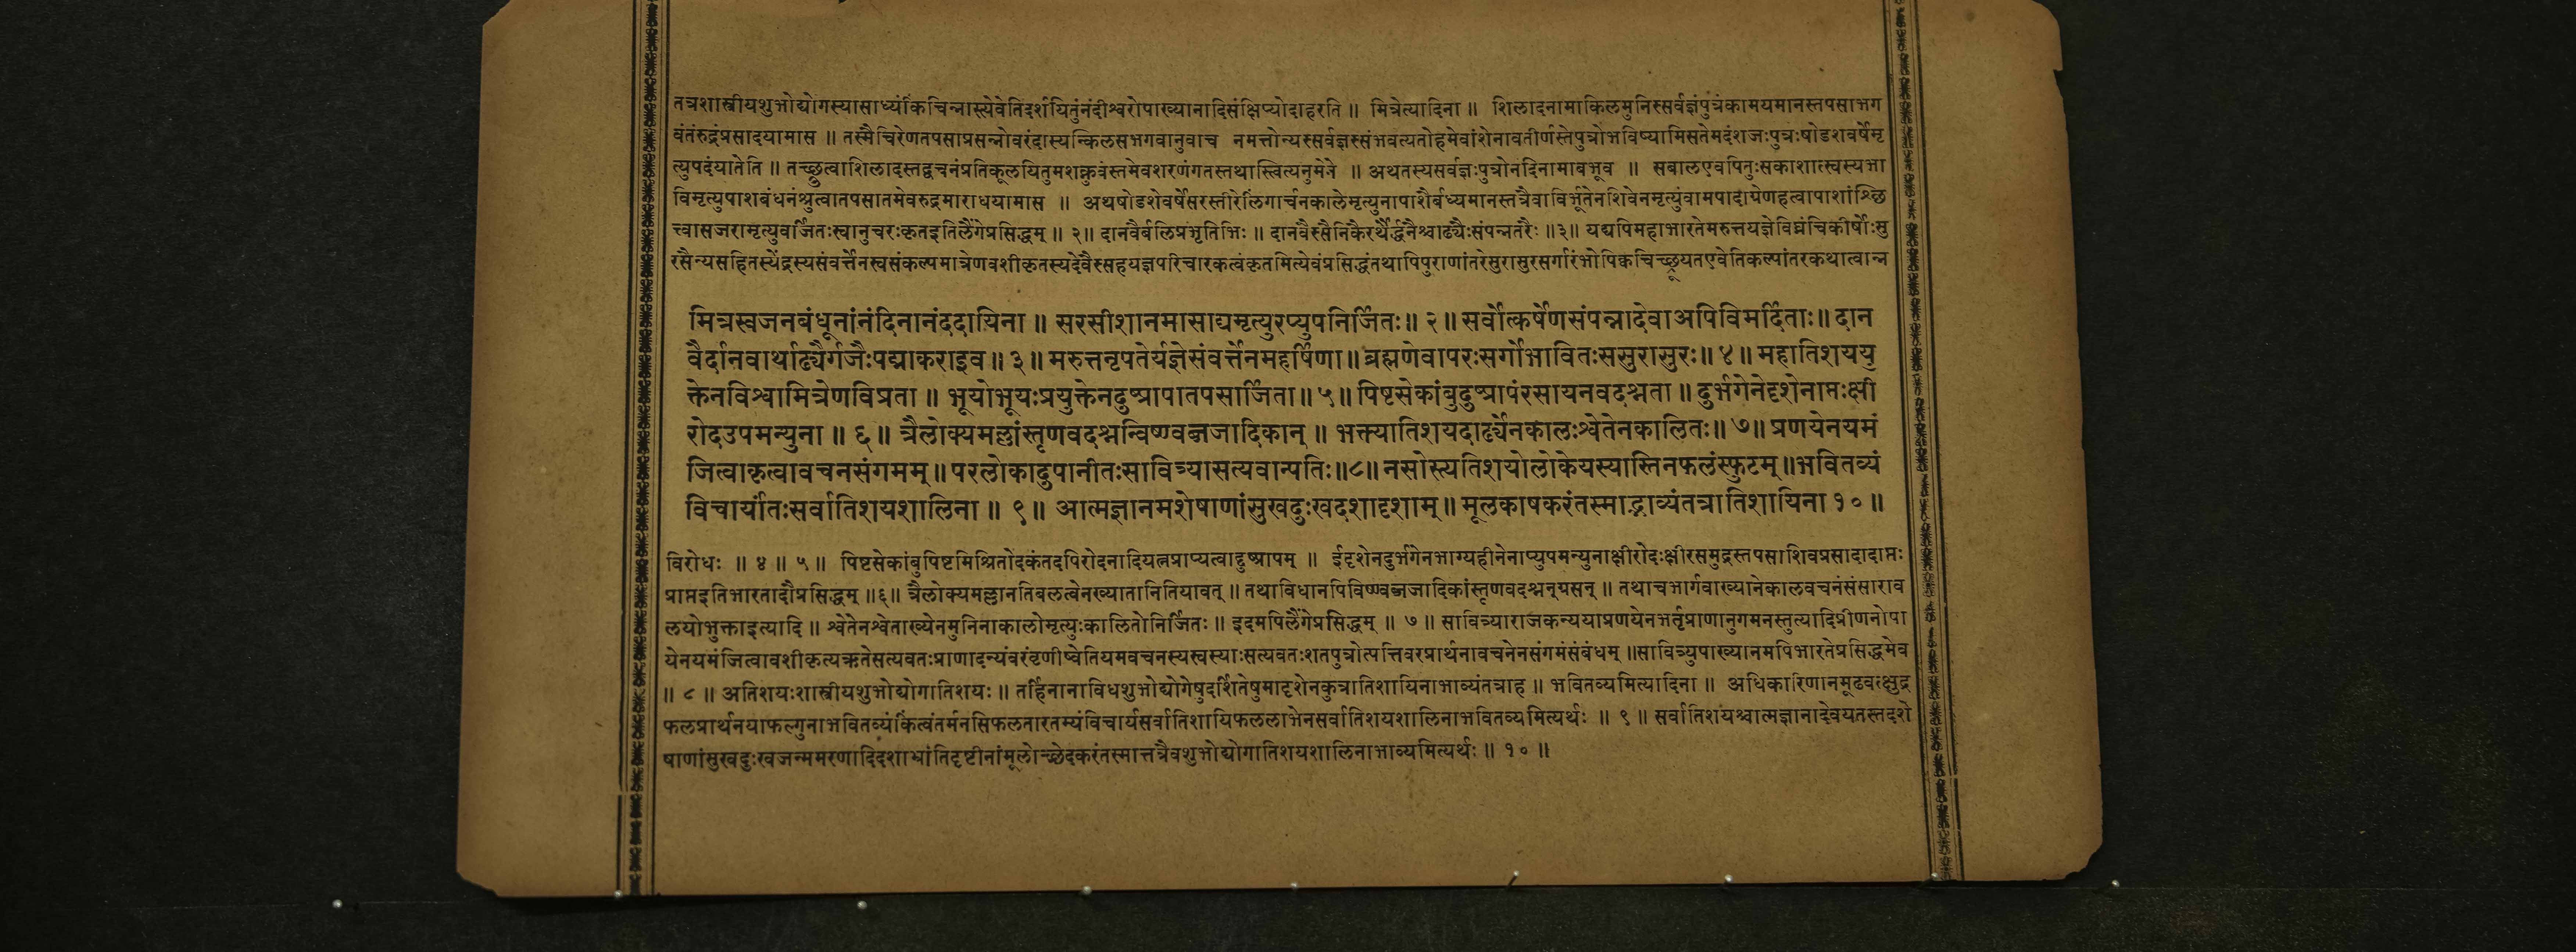 तत्रशास्त्रीयशुभोद्योगस्यासाध्यंकिंचिन्नास्त्येवेतिदर्शयितुंनंदीश्वरोपाख्यानादिसंक्षिप्योदाहरति ॥ मित्रेत्यादिना ॥ शिलादनामाकिलमुनिस्सर्वज्ञंपुत्रंकामयमानस्तपसाभग
वंतंरुद्रंप्रसादयामास ॥ तस्मैचिरेणतपसाप्रसन्नोवरंदास्यन्किलसभगवानुवाच नमत्तोन्यस्सर्वज्ञस्संभवत्यतोहमेवांशेनावतीर्णस्तेपुत्रोभविष्यामिसतेमदंशजःपुत्रःषोडशवर्षेमृ
त्युपदंयातेति ॥ तच्छ्रुत्वाशिलादस्तद्वचनंप्रतिकूलयितुमशक्नुवंस्तमेवशरणंगतस्तथास्त्वित्यनुमेने ॥ अथतस्यसर्वज्ञःपुत्रोनंदिनामाबभूव ॥ सबालएवपितुःसकाशात्स्वस्यभा
विमृत्युपाशबंधनंश्रुत्वातपसातमेवरुद्रमाराधयामास ॥ अथषोडशेवर्षेसरस्तीरेलिंगार्चनकालेमृत्युनापाशैर्बध्यमानस्तत्रैवाविर्भूतेनशिवेनमृत्युंवामपादाग्रेणहत्वापाशांश्छि
त्त्वासजरामृत्युवर्जितःस्वानुचरःकृतइतिलैंगेप्रसिद्धम् ॥ २॥ दानवैर्बलिप्रभृतिभिः ॥ दानवैस्सैनिकैरर्थैर्द्धनैश्चाढ्यैःसंपन्नतरैः ॥३॥ यद्यपिमहाभारतेमरुत्तयज्ञेविघ्नंचिकीर्षोःसु
रसैन्यसहितस्येंद्रस्यसंवर्त्तेनस्वसंकल्पमात्रेणवशीकृतस्यदेवैस्सहयज्ञपरिचारकत्वंकृतमित्येवंप्रसिद्धंतथापिपुराणांतरेसुरासुरसर्गारंभोपिक्वचिच्छ्रूयतएवेतिकल्पांतरकथात्वान्न
मित्रस्वजनबंधूनांनंदिनानंददायिना ॥ सरसीशानमासाद्यमृत्युरप्युपनिर्जितः॥ २॥ सर्वोत्कर्षेणसंपन्नादेवाअपिविमर्दिताः॥ दान
वैर्दानवार्थाढ्यैर्गजैःपद्माकराइव॥ ३॥ मरुत्तनृपतेर्यज्ञेसंवर्त्तेनमहर्षिणा॥ ब्रह्मणेवापरःसर्गोभावितःससुरासुरः॥ ४॥ महातिशययु
क्तेनविश्वामित्रेणविप्रता ॥ भूयोभूयःप्रयुक्तेनदुष्प्रापातपसार्जिता॥ ५॥ पिष्टसेकांबुदुष्प्रापंरसायनवदश्नता ॥ दुर्भगेनेदृशेनाप्तःक्षी
रोदउपमन्युना ॥ ६॥ त्रैलोक्यमल्लांस्तृणवदश्नन्विष्ण्वब्जजादिकान् ॥ भक्त्यातिशयदार्ढ्येनकालःश्वेतेनकालितः॥ ७॥ प्रणयेनयमं
जित्वाकृत्वावचनसंगमम्॥ परलोकादुपानीतःसावित्र्यासत्यवान्पतिः॥८॥ नसोस्त्यतिशयोलोकेयस्यास्तिनफलंस्फुटम्॥भवितव्यं
विचार्यांतःसर्वातिशयशालिना ॥ ९॥ आत्मज्ञानमशेषाणांसुखदुःखदशादृशाम्॥ मूलकाषकरंतस्माद्भाव्यंतत्रातिशायिना १०॥
विरोधः ॥ ४ ॥ ५ ॥ पिष्टसेकांबुपिष्टमिश्रितोदकंतदपिरोदनादियत्नप्राप्यत्वाद्दुष्प्रापम् ॥ ईदृशेनदुर्भगेनभाग्यहीनेनाप्युपमन्युनाक्षीरोदःक्षीरसमुद्रस्तपसाशिवप्रसादादाप्तः
प्राप्तइतिभारतादौप्रसिद्धम् ॥६॥ त्रैलोक्यमल्लानतिबलत्वेनख्यातानितियावत् ॥ तथाविधानपिविष्ण्वब्जजादिकांस्तृणवदश्नन्ग्रसन् ॥ तथाचभार्गवाख्यानेकालवचनंसंसाराव
लयोभुक्ताइत्यादि ॥ श्वेतेनश्वेताख्येनमुनिनाकालोमृत्युःकालितोनिर्जितः ॥ इदमपिलैंगेप्रसिद्धम् ॥ ७ ॥ सावित्र्याराजकन्ययाप्रणयेनभर्तृप्राणानुगमनस्तुत्यादिप्रीणनोपा
येनयमंजित्वावशीकृत्यऋतेसत्यवतःप्राणादन्यंवरंवृणीष्वेतियमवचनस्यस्वस्याःसत्यवतःशतपुत्रोत्पत्तिवरप्रार्थनावचनेनसंगमंसंबंधम् ॥सावित्र्युपाख्यानमपिभारतेप्रसिद्धमेव
॥ ८ ॥ अतिशयःशास्त्रीयशुभोद्योगातिशयः ॥ तर्हिनानाविधशुभोद्योगेषुदर्शितेषुमादृशेनकुत्रातिशायिनाभाव्यंतत्राह ॥ भवितव्यमित्यादिना ॥ अधिकारिणानमूढवत्क्षुद्र
फलप्रार्थनयाफल्गुनाभवितव्यंकिंत्वंतर्मनसिफलतारतम्यंविचार्यसर्वातिशायिफललाभेनसर्वातिशयशालिनाभवितव्यमित्यर्थः ॥ ९ ॥ सर्वातिशयश्चात्मज्ञानादेवयतस्तदशे
षाणांसुखदुःखजन्ममरणादिदशाभ्रांतिदृष्टीनांमूलोच्छेदकरंतस्मात्तत्रैवशुभोद्योगातिशयशालिनाभाव्यमित्यर्थः ॥ १० ॥